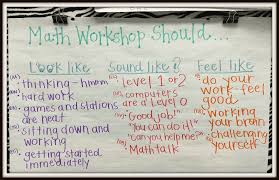 Math Workshop Should...
Look like
thinking-hmmm
hard work
games and stations
are neat
sitting down and
working
getting started
immediately
Sound like?
level 1 or 2
computers
are a Level 0
"Good job!"
"You can do it!"
"Can you help me?"
Math talk
Feel like
do your
work-feel
good
working
your brain
challenging
yourself